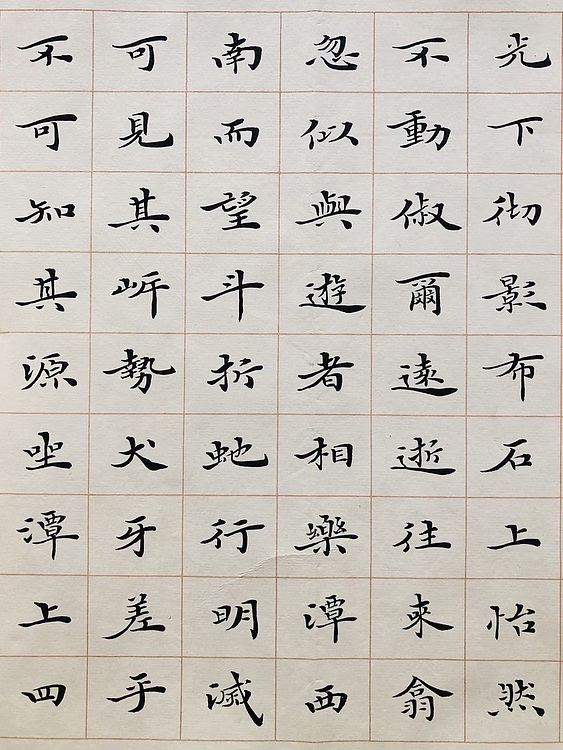 光下彻影布石上怡然
不動俶爾遠逝往来翕
忽似與遊者相樂潭西
南而望斗折虵行明滅
可見其岓勢犬牙差乎
不可知其源坐潭上四